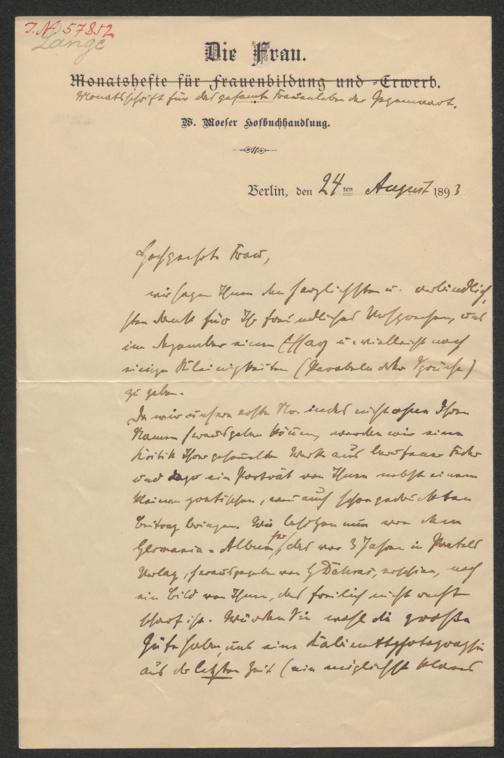 J. N. 57852
Lange
Die Frau.
Monatshefte für Frauenbildung und -Erwerb.
Monatsschrift für das gesamte Frauenleben der Gegenwart.
W. Moeser Hofbuchhandlung.
Berlin, den 24 ten August 1893
Hochgeehrte Frau,
wir sagen Ihnen den herzlichsten u. verbindlich-
sten Dank für Ihr freundliches Versprechen, uns
im Dezember einen Essay u. vielleicht noch
einige Kleinigkeiten (Parabeln oder Sprüche)
zu geben.
Da wir unsere erste No. indes nicht ohne Ihren
Namen herausgeben können, werden wir eine
Kritik Ihrer gesammelten Werke aus Feder
und dazu ein Porträt von Ihnen nebst einem
kleinen poetischen, wenn auch schon gedruckten
Beitrag bringen. Wir besitzen nun aus dem
Germania-Album, für das vor 3 Jahren in
Verlag, herausgegeben von Dahms, erschien, noch
ein Bild von Ihnen, das freilich nicht recht
scharf ist. Würden Sie wohl die große
Güte haben, uns eine Kabinettphotographie
aus der letzten Zeit (ein möglichst klares